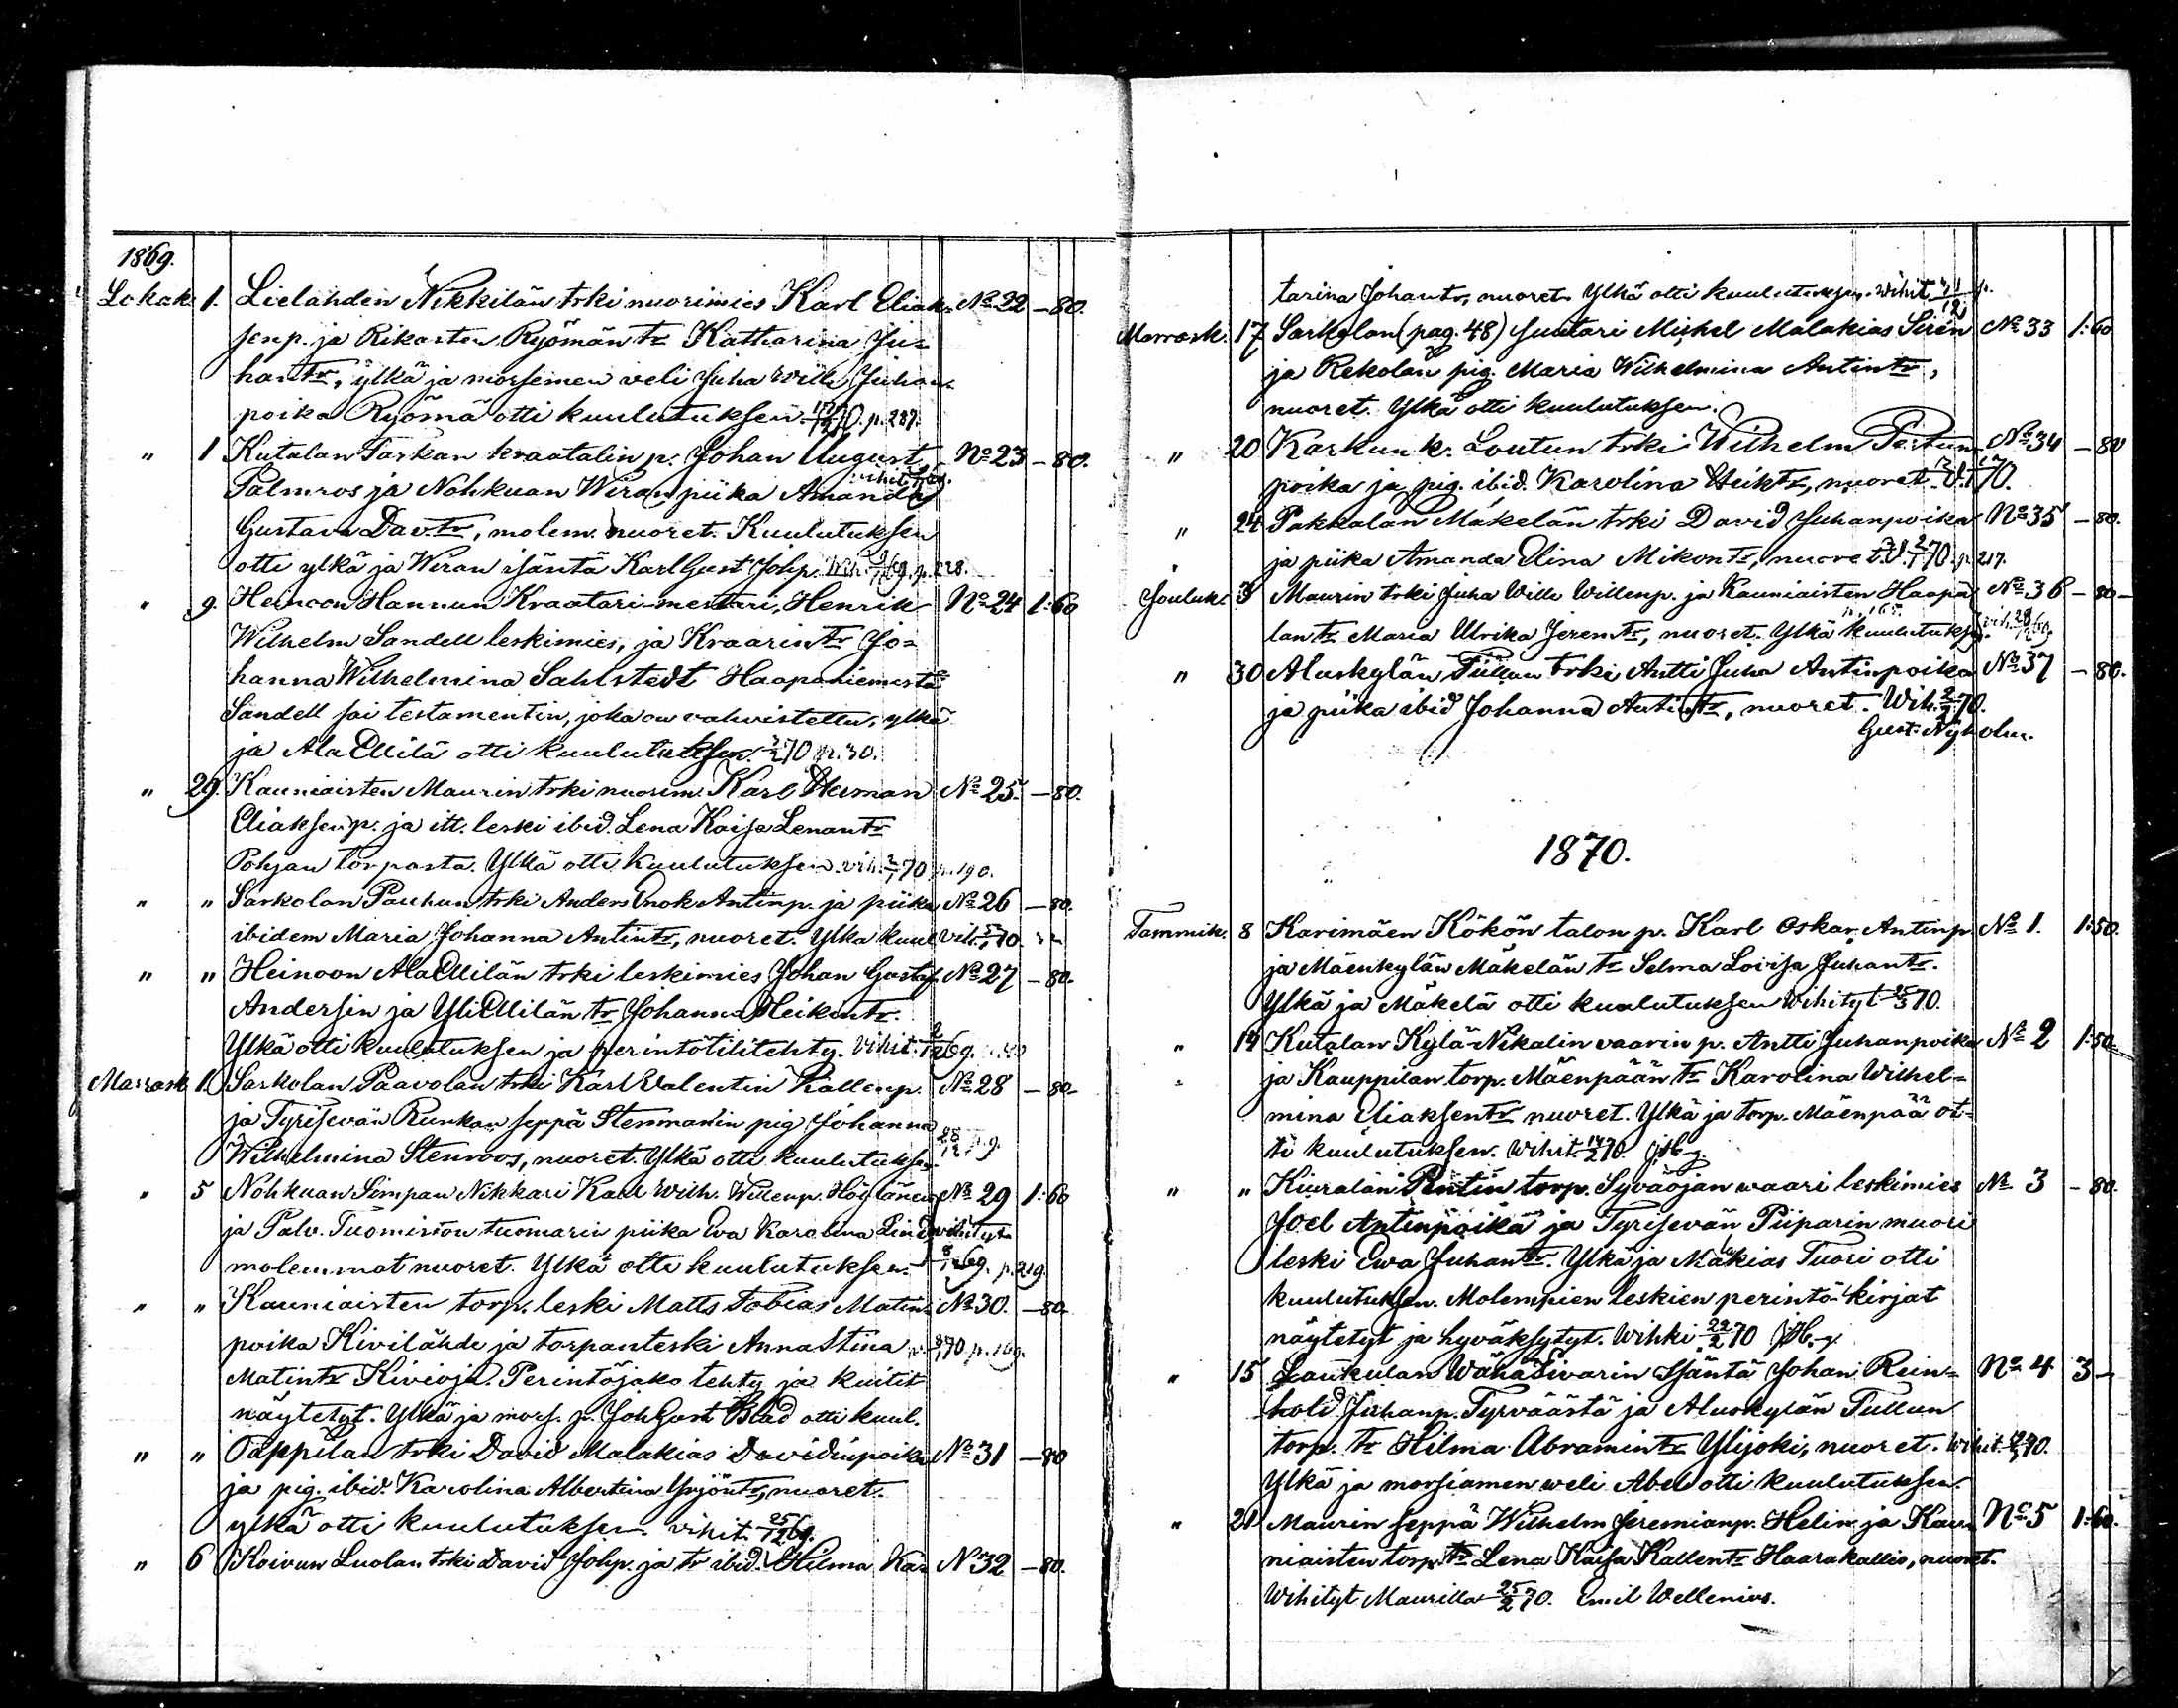 1869.
Lokak. 1. Lielahden Nikkilän trki nuorimies Karl Eliak= No 22 - 80.
senp. ja Rikasten Ryömän tr Katharina Ju=
hantr, ylkä ja morsemen veli Juha Wille Juhan
poika Ryömä otti kuulutuksen. 70. p. 287.
" 1 Kutalan Taskan kraatalin p. Johan August No 23 - 80.
Palmros ja Nohkuan Wiran piika Amanda
Gustava Dav.tr, molem. nuoret. Kuulutuksen
otti ylkä ja Wiran isäntä Karl Gust Johp. Wih. 69. p. 228.
" 9. Heinoon Hannun Kraatari-mestari, Henrik No 24 1:60
Wilhelm Sandell leskimies, ja Kraarin tr Jo=
hanna Wilhelmina Sahlstedt Haapaniemestä
Sandell sai testamentin, joka on vahvistettu, ylkä
ja Ala Ellilä otti kuulutuksen. 70 p. 30.
" 29. Kauniaisten Maurin trki nuorim. Karl Herman No 25. - 80.
Eliaksenp. ja itt. leski ibid. Lena Kaisa Lenantr
Pohjan torpasta. Ylkä otti kuulutuksen. vih. 70 p. 190.
" " Sarkolan Pauhun trki Anders Enok Antinp. ja piika No 26 - 80.
ibidem Maria Johanna Antintr, nuoret. Ylkä kuul vih. 70.
" " Heinoon Ala Ellilän trki leskimies Johan Gustaf No 27 - 80.
Andersin ja Yli Ellilän tr Johanna Heikintr.
Ylkä otti kuulutuksen ja perintötili tehty. vihit. 2/12 69.
Marrask. 1. Sarkolan Paavolan trki Karl Valentin Kallenp. No 28 - 80
ja Tyrisevän Runkan seppä Stenmanin pig Johanna
Wilhelmina Stenroos, nuoret. Ylkä otti kuulutuksen 26/12 p. 9.
" 5 Nohkuan Simpan Nikkari Karl Wilh. Willenp. Höglänen No 29 1:60
ja Palv. Tuomiston tuomarin piika Eva Karolina Lind, wihityt
molemmat nuoret. Ylkä otti kuulutuksen. 8/12 69. p. 219.
" " Kauniaisten torp. leski Matts Tobias Matin= No 30. - 80
poika Kivilähde ja torpanleski Anna Stina 70 p. 169.
Matintr Kivioja. Perintöjako tehty ja kuitit
näytetyt. Ylkä ja mors. p. Joh Gust Blad otti kuul.
" " Oappilan trki David Malakias Davidinpoika No 31 - 80
ja pig. ibid. Karolina Albertina Yrjöntr, nuoret.
ylkä otti kuulutuksen. vihit. 25/12 69.
" 6 Koivun Luolan trki David Johp. ja tr ibid. Hilma Ka= No 32 - 80.
tarina Johantr, nuoret. Ylkä otti kuulutuksen. wihit 31/12
Marrask. 17 Sarkolan (pag. 48) suutari Michel Malakias Sirén No 33 1:60
ja Rekolan pig. Maria Wilhelmina Antintr,
nuoret. Ylkä otti kuulutuksen.
" 20 Karkun k. Loutun trki Wilhelm Pertun= No 34 - 80
poika ja pig. ibid. Karolina Heiktr, nuoret 70.
" 24 Pakkalan Mäkelän trki David Juhanpoika No 35 - 80.
ja piika Amanda Elina Mikontr, nuoret. 70. p. 217.
Jouluk. 3 Maurin trki Juha Wille Willenp. ja Kauniaisten Haapa= No 36 - 80 -
p. 165.
lan tr Maria Ulrika Jeremtr, nuoret. Ylkä kuulutuksen. vih. 28/12 69.
" 30 Aluskylän Tullun trki Antti Juha Antinpoika No 37 - 80.
ja piika ibid Johanna Antintr, nuoret. Wih. 2/2 70.
Gust. Nyholm.
1870.
Tammik. 8 Karimäen Kökön talon p. Karl Oskar Antinp. No 1. 1:50.
ja Mäenkylän Mäkelän tr Selma Lovisa Juhantr.
Ylkä ja Mäkelä otti kuulutuksen Wihityt 25/3 70.
" 14 Kutalan Kylä-Nikalin vaarin p. Antti Juhanpoika No 2 1:50
ja Kauppilan torp. Mäenpään tr Karolina Wilhel=
mina Eliaksentr nuoret. Ylkä ja torp. Mäenpää ot=
ti kuulutuksen. Wihit 14/2 70
" " Kiuralan Pentin torp. Syväojan waari leskimies No 3 - 80.
Joel Antinpoika ja Tyrisevän Piiparin muori
leski Ewa Juhantr. Ylkä ja Malakias Tuori otti
kuulutuksen. Molempien leskien perintö-kirjat
näytetyt ja hyväksytyt. Wihki 22/2 70
" 15 Laukulan Wähä Sivarin isäntä Johan Rein= No 4 3 -
hold Juhanp. Tyrväästä ja Aluskylän Tullun
torp. tr Hilma Abramintr Ylijoki, nuoret. Wihit 70.
Ylkä ja morsiamen weli Abel otti kuulutuksen.
" 21 Maurin seppä Wilhelm Jeremianp. Helin ja Kau= No 5 1:60.
niaisten torp. tr Lena Kaisa Kallentr Haarakallio, nuoret.
Wihityt Maurilla 25/2 70. Emil Wellenius.